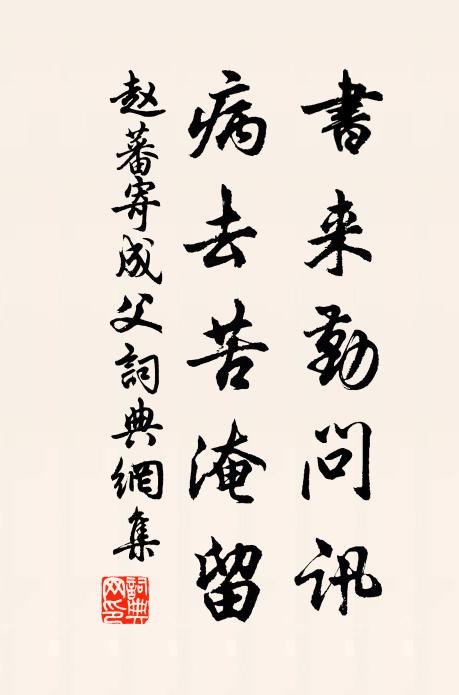 書来勤問訊
病去苦淹留
赵蕃寄成父詞典網集
詞典網印